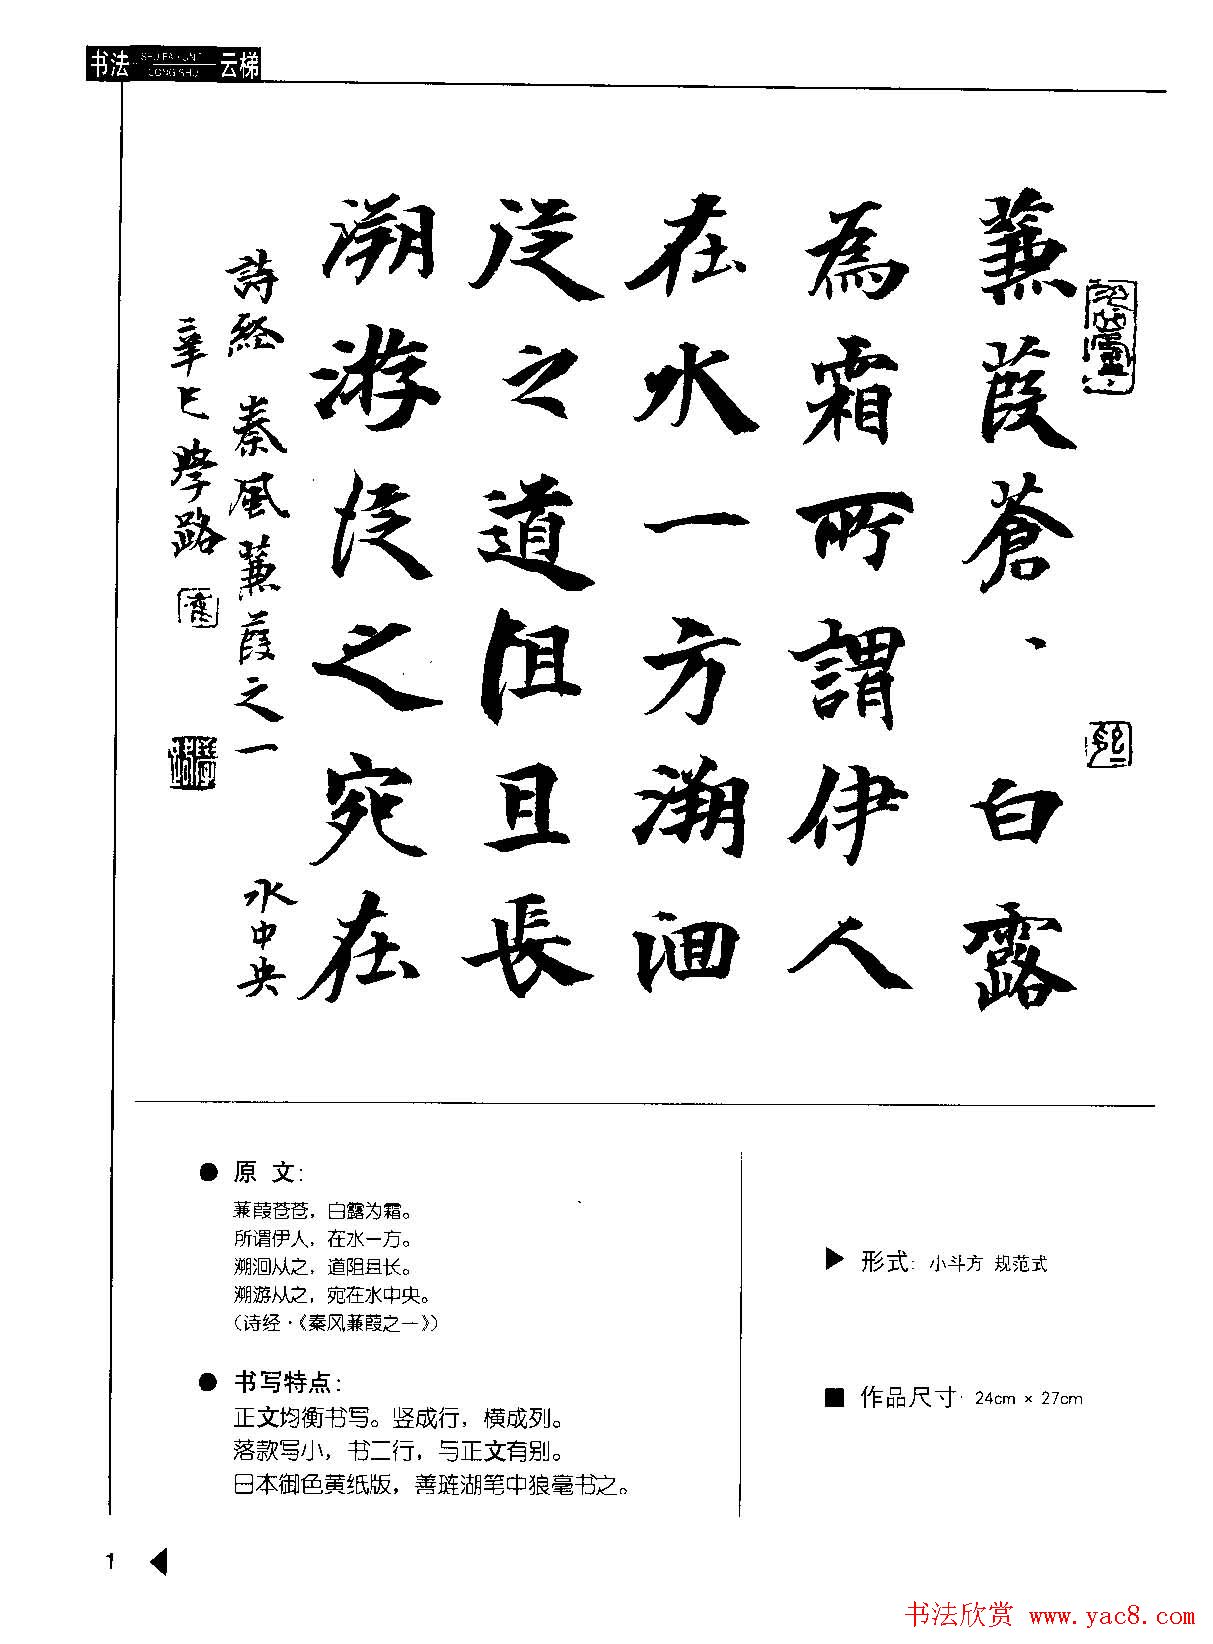 书法 云梯
蒹葭蒼、白露
為霜所謂伊人
在水一方溯洄
従之道阻且長
溯游従之宛在
水中央
詩経秦風蒹葭之一
辛巳學路
原 文:
蒹葭苍苍，白露为霜。
所谓伊人，在水一方。
溯洄从之，道阻且长。
溯游从之，宛在水中央。
(诗经·《秦风蒹葭之一》)
书写特点:
正文均衡书写。竖成行，横成列。
落款写小，书二行，与正文有别。
日本御色黄纸版，善琏湖笔中狼毫书之。
形式: 小斗方 规范式
作品尺寸· 24cm × 27cm
1
书法欣赏 www.yac8.com